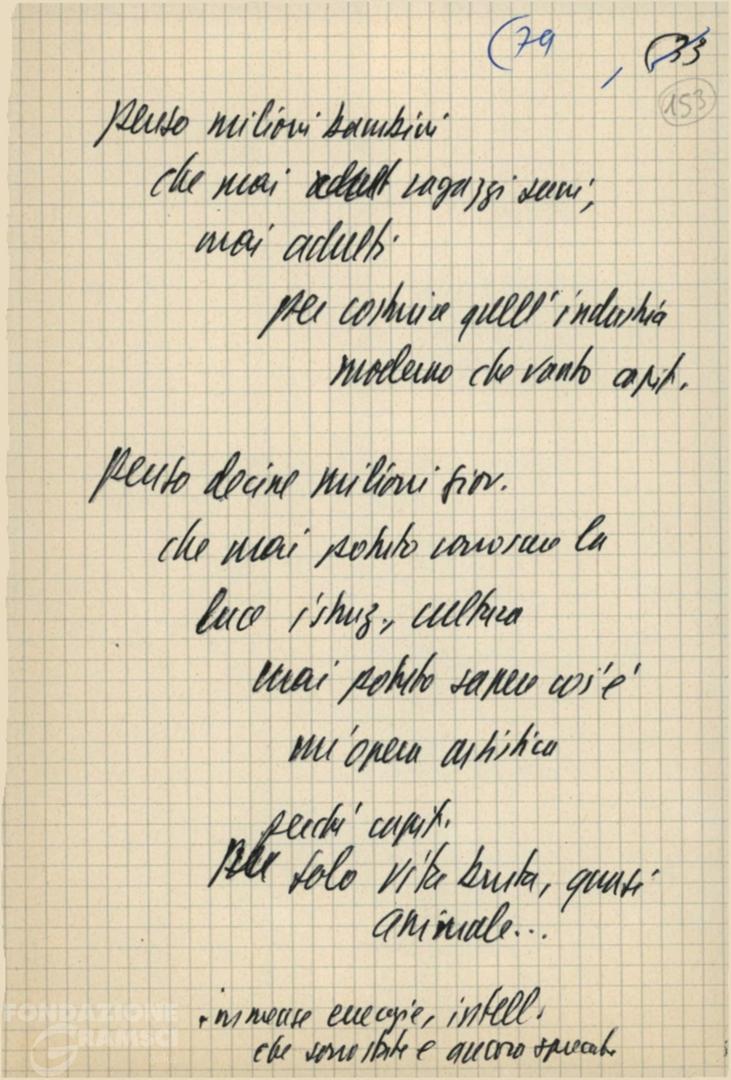 (79 , (33
153
penso milioni bambini
che mai adult ragazzi seri,
mai adulti
per costruire quell'industria
moderno che vanto capit.
penso decine milioni giov.
che mai potuto conoscere la
luce istruz., cultura
mai potuto sapere cos'è
un'opera artistica
perché capit.
per solo vita bruta, quasi
animale...
immense energie, intell.
che sono state e ancora sprecate
FONDAZIONE
GRAMSCI